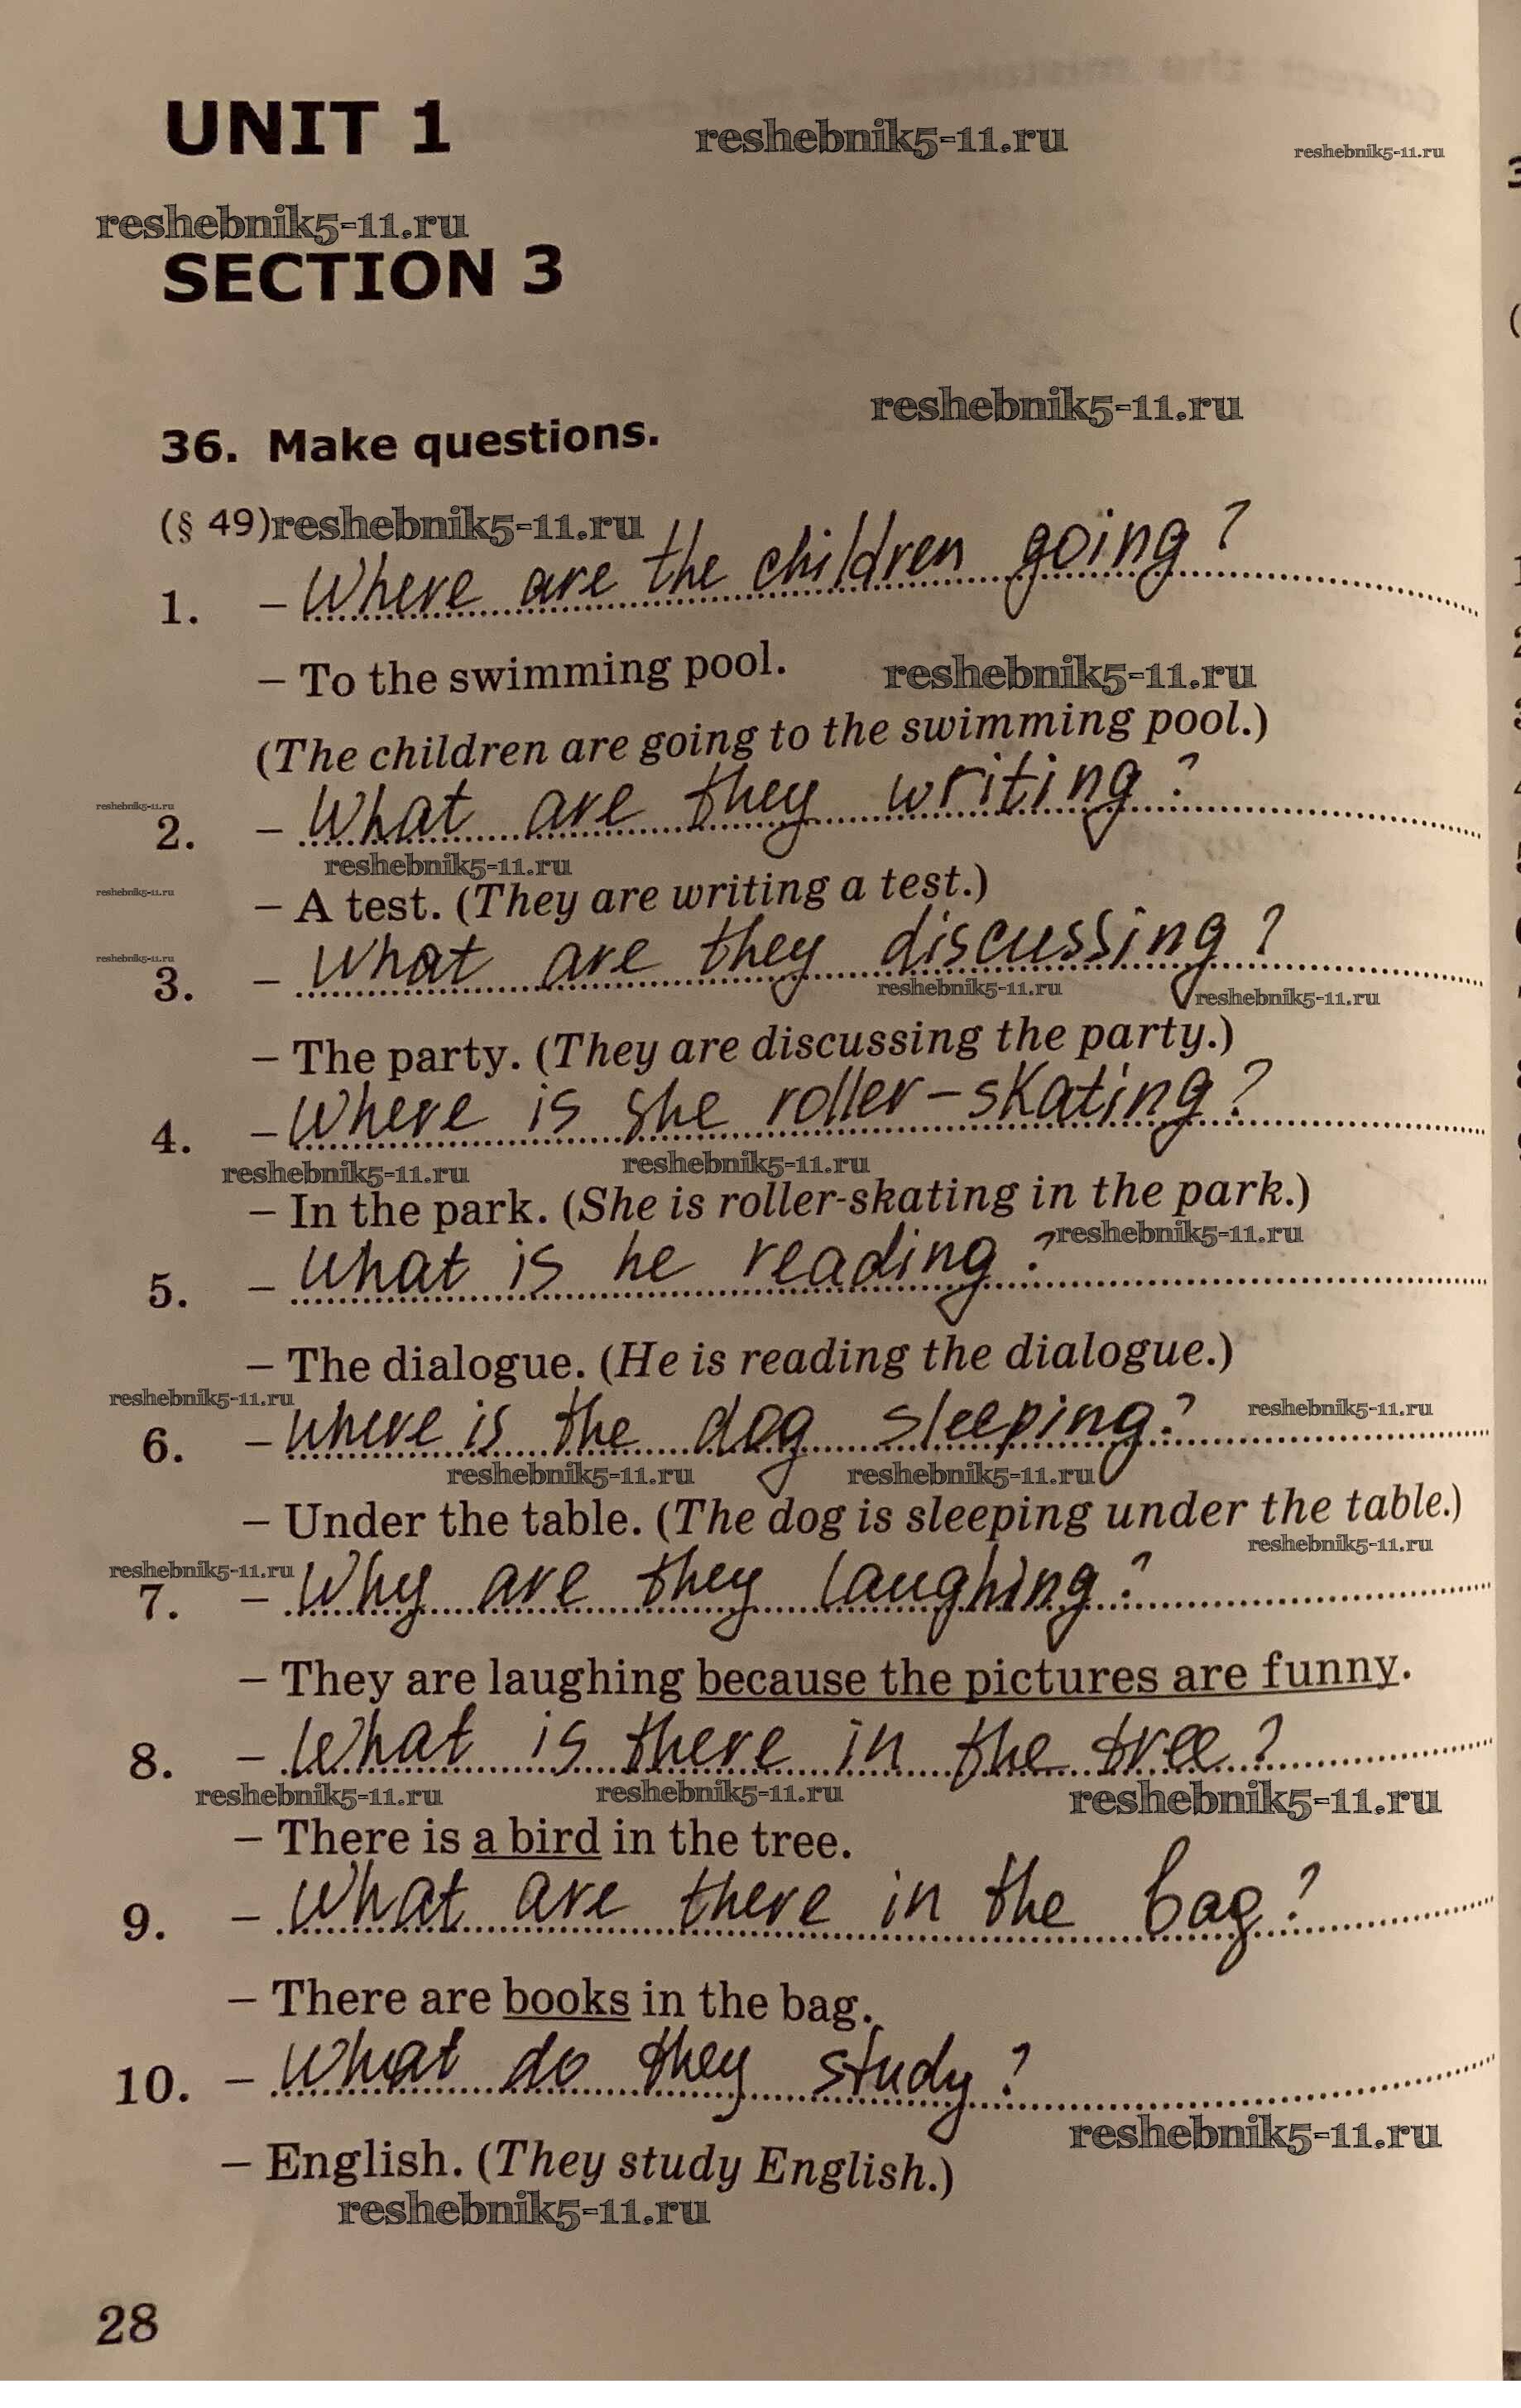 UNIT 1
reshebnik5-11.ru
reshebnik5-11.ru
reshebnik5-11.ru
SECTION 3
reshebnik5-11.ru
36. Make questions.
(§ 49) reshebnik5-11.ru
1. – Where are the children going?
– To the swimming pool.
reshebnik5-11.ru
(The children are going to the swimming pool.)
reshebnik5-11.ru
2. – What are they writing?
reshebnik5-11.ru
reshebnik5-11.ru
– A test. (They are writing a test.)
reshebnik5-11.ru
3. – What are they discussing?
reshebnik5-11.ru
reshebnik5-11.ru
– The party. (They are discussing the party.)
4. – Where is she roller-skating?
reshebnik5-11.ru
reshebnik5-11.ru
– In the park. (She is roller-skating in the park.)
reshebnik5-11.ru
5. – What is he reading?
– The dialogue. (He is reading the dialogue.)
reshebnik5-11.ru
reshebnik5-11.ru
6. – where is the dog sleeping?
reshebnik5-11.ru
reshebnik5-11.ru
– Under the table. (The dog is sleeping under the table.)
reshebnik5-11.ru
reshebnik5-11.ru
7. – Why are they laughing?
– They are laughing because the pictures are funny.
8. – What is there in the tree?
reshebnik5-11.ru
reshebnik5-11.ru
reshebnik5-11.ru
– There is a bird in the tree.
9. – What are there in the bag?
– There are books in the bag.
10. – What do they study?
reshebnik5-11.ru
– English. (They study English.)
reshebnik5-11.ru
28